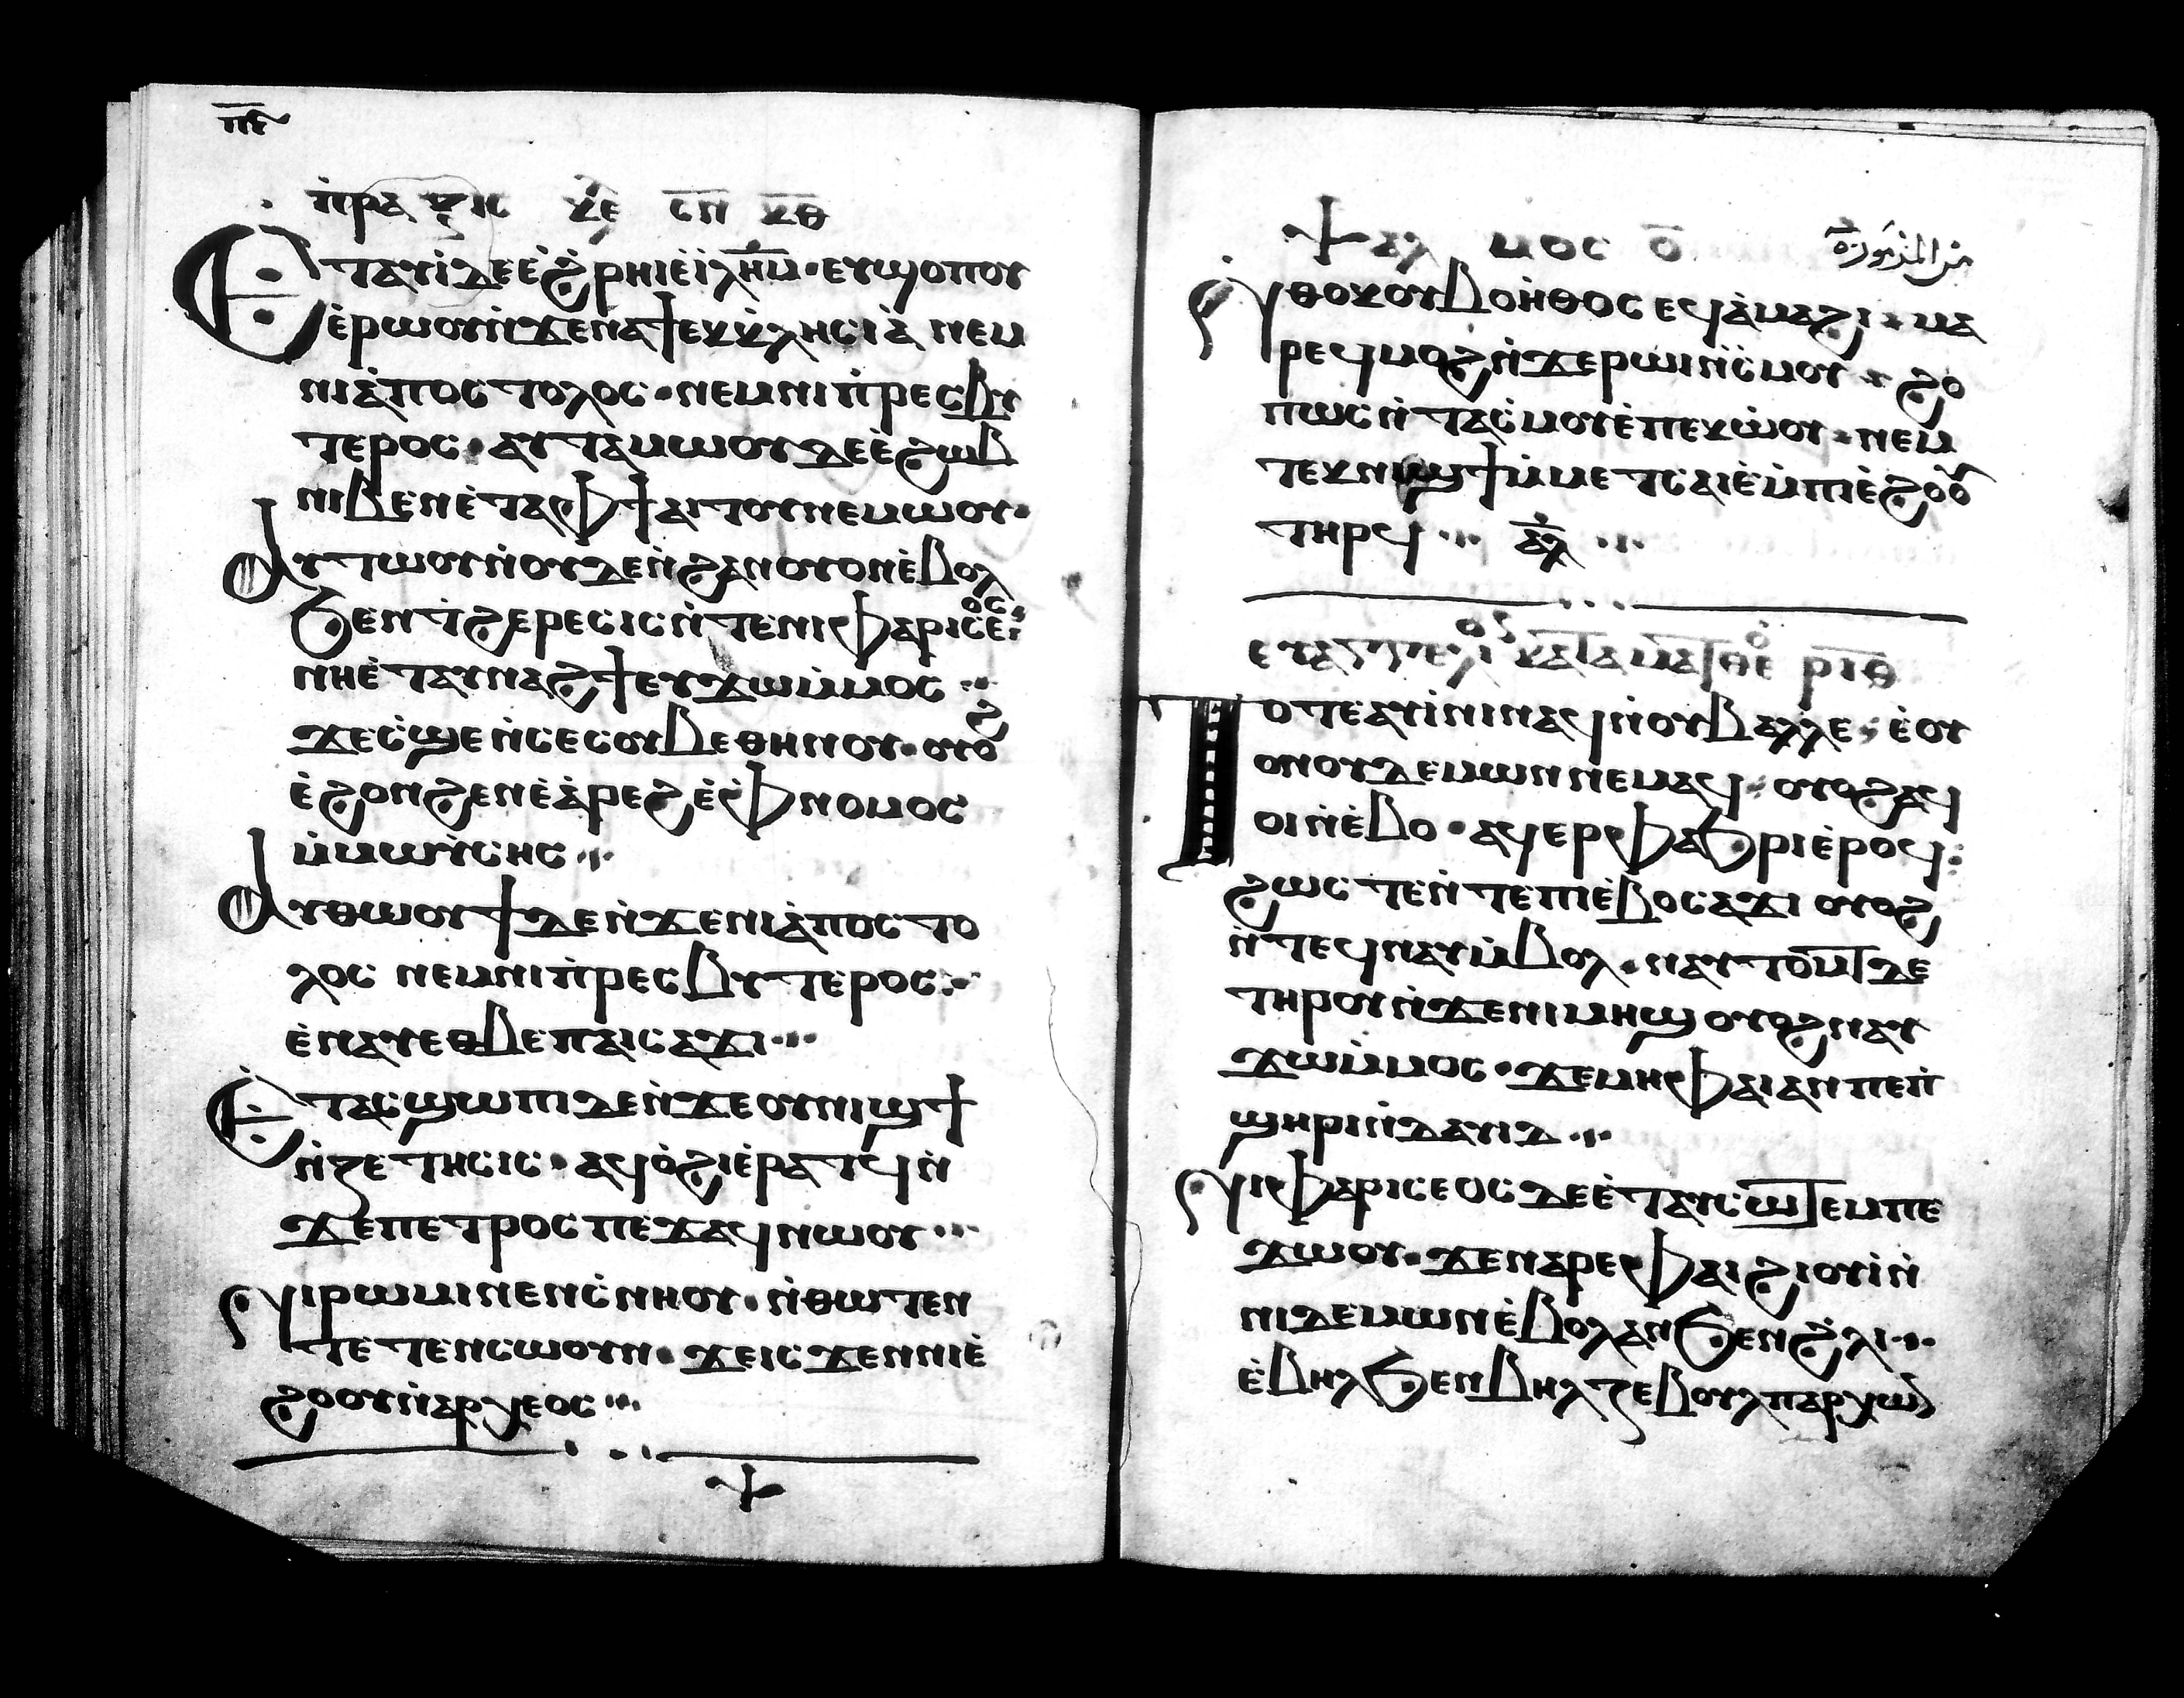 ⲡ̅ⲋ̅
ⲡ̀ⲣⲁⲝⲓⲥ ⲕⲉ ⲥⲡ ⲕⲑ
Ⲉⲧⲁⲩⲓ̀ ⲇⲉ ⲉ̀ϩ̀ⲣⲏⲓ ⲉ̀ⲓ̀ⲗⲏ̅ⲙ̅ · ⲉⲩϣⲟⲡⲟⲩ
ⲉ̀ⲣⲱⲟⲩ ⲛ̀ϫⲉ ⲛⲁϯⲉⲕⲕ̀ⲗⲏⲥⲓⲁ̀ ⲛⲉⲙ
ⲛⲓⲁ̀ⲡⲟⲥⲧⲟⲗⲟⲥ · ⲛⲉⲙ ⲛⲓⲡ̀ⲣⲉⲥⲃⲩ
ⲧⲉⲣⲟⲥ · ⲁⲩⲧⲁⲙⲱⲟⲩ ⲇⲉ ⲉ̀ϩⲱⲃ
ⲛⲓⲃⲉⲛ ⲉ̀ⲧⲁ ⲫϯ ⲁⲓⲧⲟⲩ ⲛⲉⲙⲱⲟⲩ ·
Ⲁⲩⲧⲱⲟⲩⲛⲟⲩ ⲇⲉ ⲛ̀ϩⲁⲛⲟⲩⲟⲛ ⲉ̀ⲃⲟⲗ
ϧⲉⲛ ϯϩⲉⲣⲉⲥⲓⲥ ⲛ̀ⲧⲉ ⲛⲓⲫⲁⲣⲓⲥⲉⲟⲥ
ⲛⲏ ⲉ̀ⲧⲁⲩⲛⲁϩϯ ⲉⲩϫⲱ ⲙ̀ⲙⲟⲥ ··
ϫⲉ ⲥ̀ϣⲉ ⲛ̀ⲥⲉⲥⲟⲩⲃⲉ ⲑⲏⲛⲟⲩ · ⲟⲩⲟϩ
ⲉ̀ϩⲟⲛϩⲉⲛ ⲉ̀ⲁ̀ⲣⲉϩ ⲉ̀ⲫⲛⲟⲙⲟⲥ
ⲙ̀ⲙⲱⲩ̀ⲥⲏⲥ ··
Ⲁⲩⲑⲱⲟⲩϯ ⲇⲉ ⲛ̀ϫⲉ ⲛⲓⲁ̀ⲡⲟⲥⲧⲟ
ⲗⲟⲥ ⲛⲉⲙ ⲛⲓⲡ̀ⲣⲉⲥⲃⲩⲧⲉⲣⲟⲥ ··
ⲉ̀ⲛⲁⲩ ⲉⲑⲃⲉ ⲡⲁⲓⲥⲁϫⲓ ···
Ⲉⲧⲁⲥϣⲱⲡⲓ ⲇⲉ ⲛ̀ϫⲉ ⲟⲩⲛⲓϣϯ
ⲛ̀ⲍⲉⲧⲏⲥⲓⲥ · ⲁϥⲟ̀ϩⲓ ⲉ̀ⲣⲁⲧϥ ⲛ̀
ϫⲉ ⲡⲉⲧⲣⲟⲥ ⲡⲉϫⲁϥ ⲛⲱⲟⲩ ···
Ⲛⲓⲣⲱⲙⲓ ⲛⲉⲛⲥ̀ⲛⲏⲟⲩ · ⲛ̀ⲑⲱⲧⲉⲛ
ⲧⲉⲧⲉⲛⲥⲱⲟⲩⲛ · ϫⲉ ⲓⲥϫⲉⲛ ⲛⲓⲉ̀
ϩⲟⲟⲩ ⲛ̀ⲁⲣⲭⲉⲟⲥ ···
Ⲯⲁⲗⲙⲟⲥ ⲟ̅
من المزمور
Ⲛⲑⲟⲕ ⲟⲩⲃⲟⲏ̀ⲑⲟⲥ ⲉϥⲁ̀ⲙⲁϩⲓ · ⲙⲁ
ⲣⲉϥⲙⲟϩ ⲛ̀ϫⲉ ⲣⲱⲓ ⲛ̀ⲥ̀ⲙⲟⲩ · ϩⲟ
ⲡⲱⲥ ⲛ̀ⲧⲁⲥ̀ⲙⲟⲩ ⲉ̀ⲡⲉⲕⲱ̀ⲟⲩ · ⲛⲉⲙ
ⲧⲉⲕⲛⲓϣϯ ⲙ̀ⲙⲉⲧⲥⲁⲓⲉ̀ ⲙ̀ⲡⲓⲉ̀ϩⲟⲟⲩ
ⲧⲏⲣϥ ··· ⲁ̅ⲗ̅ ···
ⲉⲩⲁⲅⲅⲉⲗⲓⲟⲥ ⲕⲁⲧⲁ ⲙⲁⲧⲑⲉⲟ ⲣⲓⲑ
Ⲧⲟⲧⲉ ⲁⲩⲓ̀ⲛⲓ ⲛⲁϥ ⲛ̀ⲟⲩⲃⲉⲗⲗⲉ · ⲉ̀ⲟⲩ
ⲟⲛ ⲟⲩⲇⲉⲙⲱⲛ ⲛⲉⲙⲁϥ · ⲟⲩⲟϩ ⲁϥ
ⲟⲓ ⲛ̀ⲉ̀ⲃⲟ · ⲁϥⲉⲣⲫⲁϧⲣⲓ ⲉ̀ⲣⲟϥ :
ϩⲱⲥⲧⲉ ⲛ̀ⲧⲉ ⲡⲓⲉ̀ⲃⲟ ⲥⲁϫⲓ ⲟⲩⲟϩ
ⲛ̀ⲧⲉϥⲛⲁⲩ ⲙ̀ⲃⲟⲗ · ⲛⲁⲩⲧⲟⲙⲧ ⲇⲉ
ⲧⲏⲣⲟⲩ ⲛ̀ϫⲉ ⲛⲓⲙⲏϣ ⲟⲩⲟϩ ⲛⲁⲩ
ϫⲱ ⲙ̀ⲙⲟⲥ · ϫⲉ ⲙⲏ ⲫⲁⲓ ⲁⲛ ⲡⲉ ⲡ̀
ϣⲏⲣⲓ ⲛ̀ⲇⲁⲩⲓⲇ ···
Ⲛⲓⲫⲁⲣⲓⲥⲉⲟⲥ ⲇⲉ ⲉ̀ⲧⲁⲩⲥⲱⲧⲉⲙ ⲡⲉ
ϫⲱⲟⲩ · ϫⲉ ⲛⲁⲣⲉ ⲫⲁⲓ ϩⲓⲟⲩⲓ̀ ⲛ̀
ⲛⲓⲇⲉⲙⲱⲛ ⲉ̀ⲃⲟⲗ ⲁⲛ ϧⲉⲛ ϩ̀ⲗⲓ ···
ⲉ̀ⲃⲏⲗ ϧⲉⲛ ⲃⲏⲗⲍⲉⲃⲟⲩⲗ ⲡⲁⲣⲭⲱⲛ